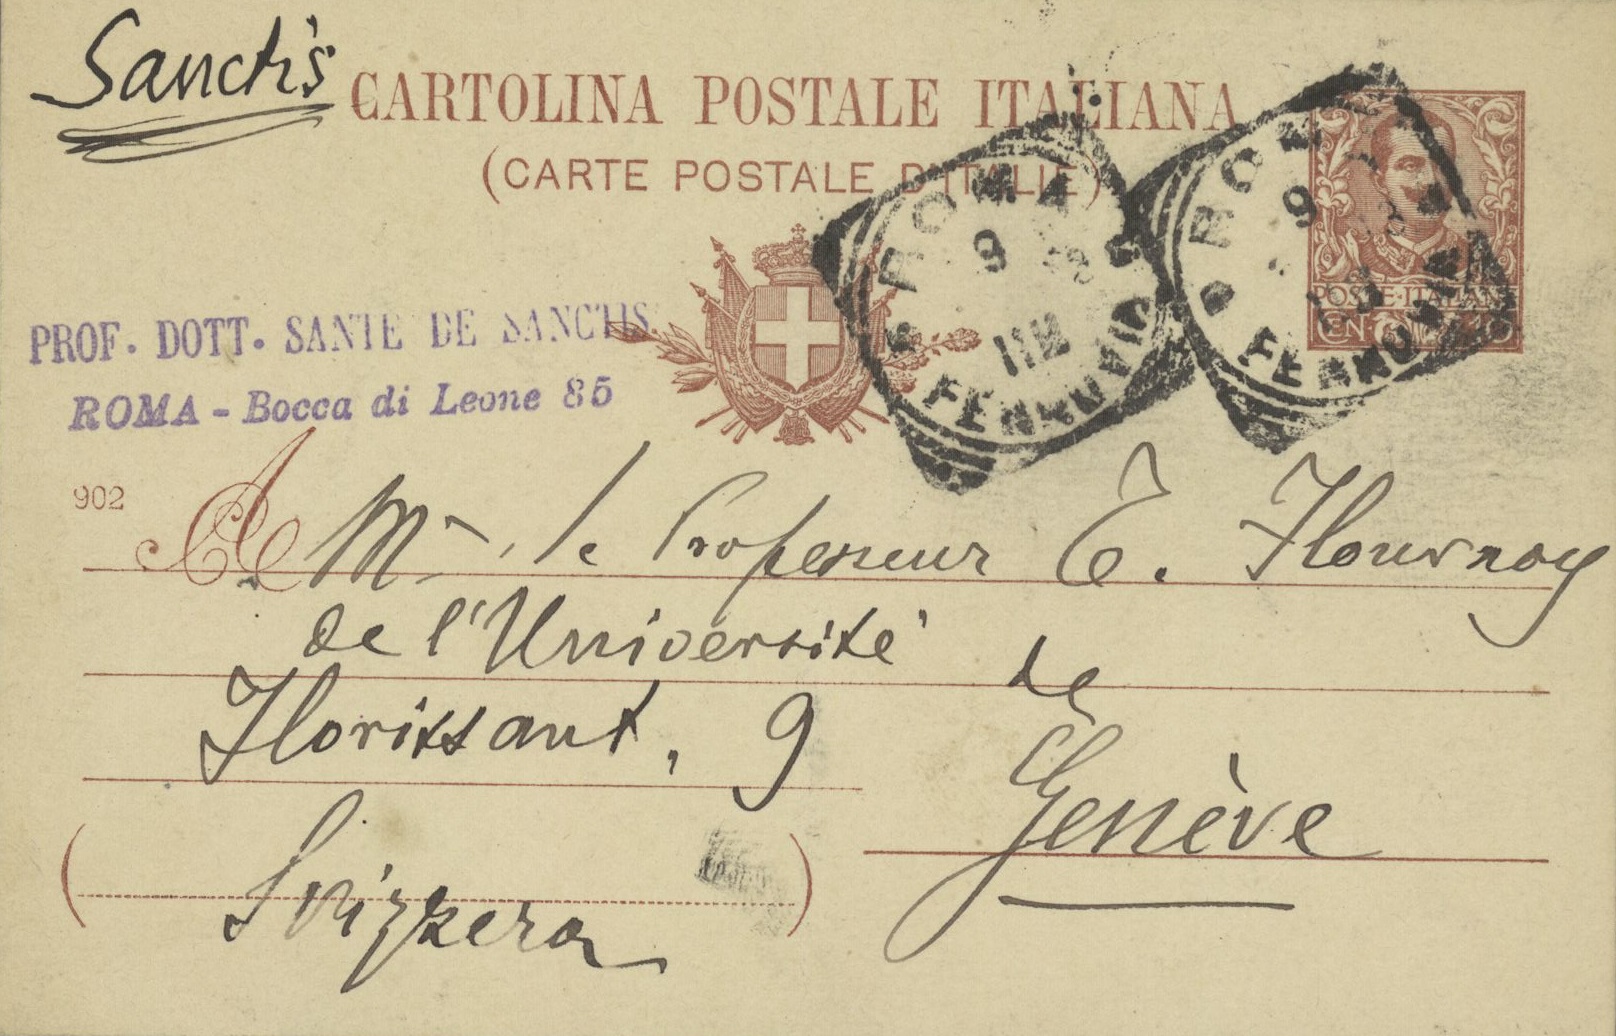 Sanctis
CARTOLINA POSTALE ITALIANA
(CARTE POSTALE D'ITALIE)
ROMA
9
11M
FERROVIA
ROMA
9
FERROVIA
POSTE ITALIANE
CEN
PROF. DOTT. SANTE DE SANCTIS
ROMA - Bocca di Leone 85
902
A Mr. le Professeur T. Flournoy
de l'Université de
Florissant, 9
Genève
(Svizzera)